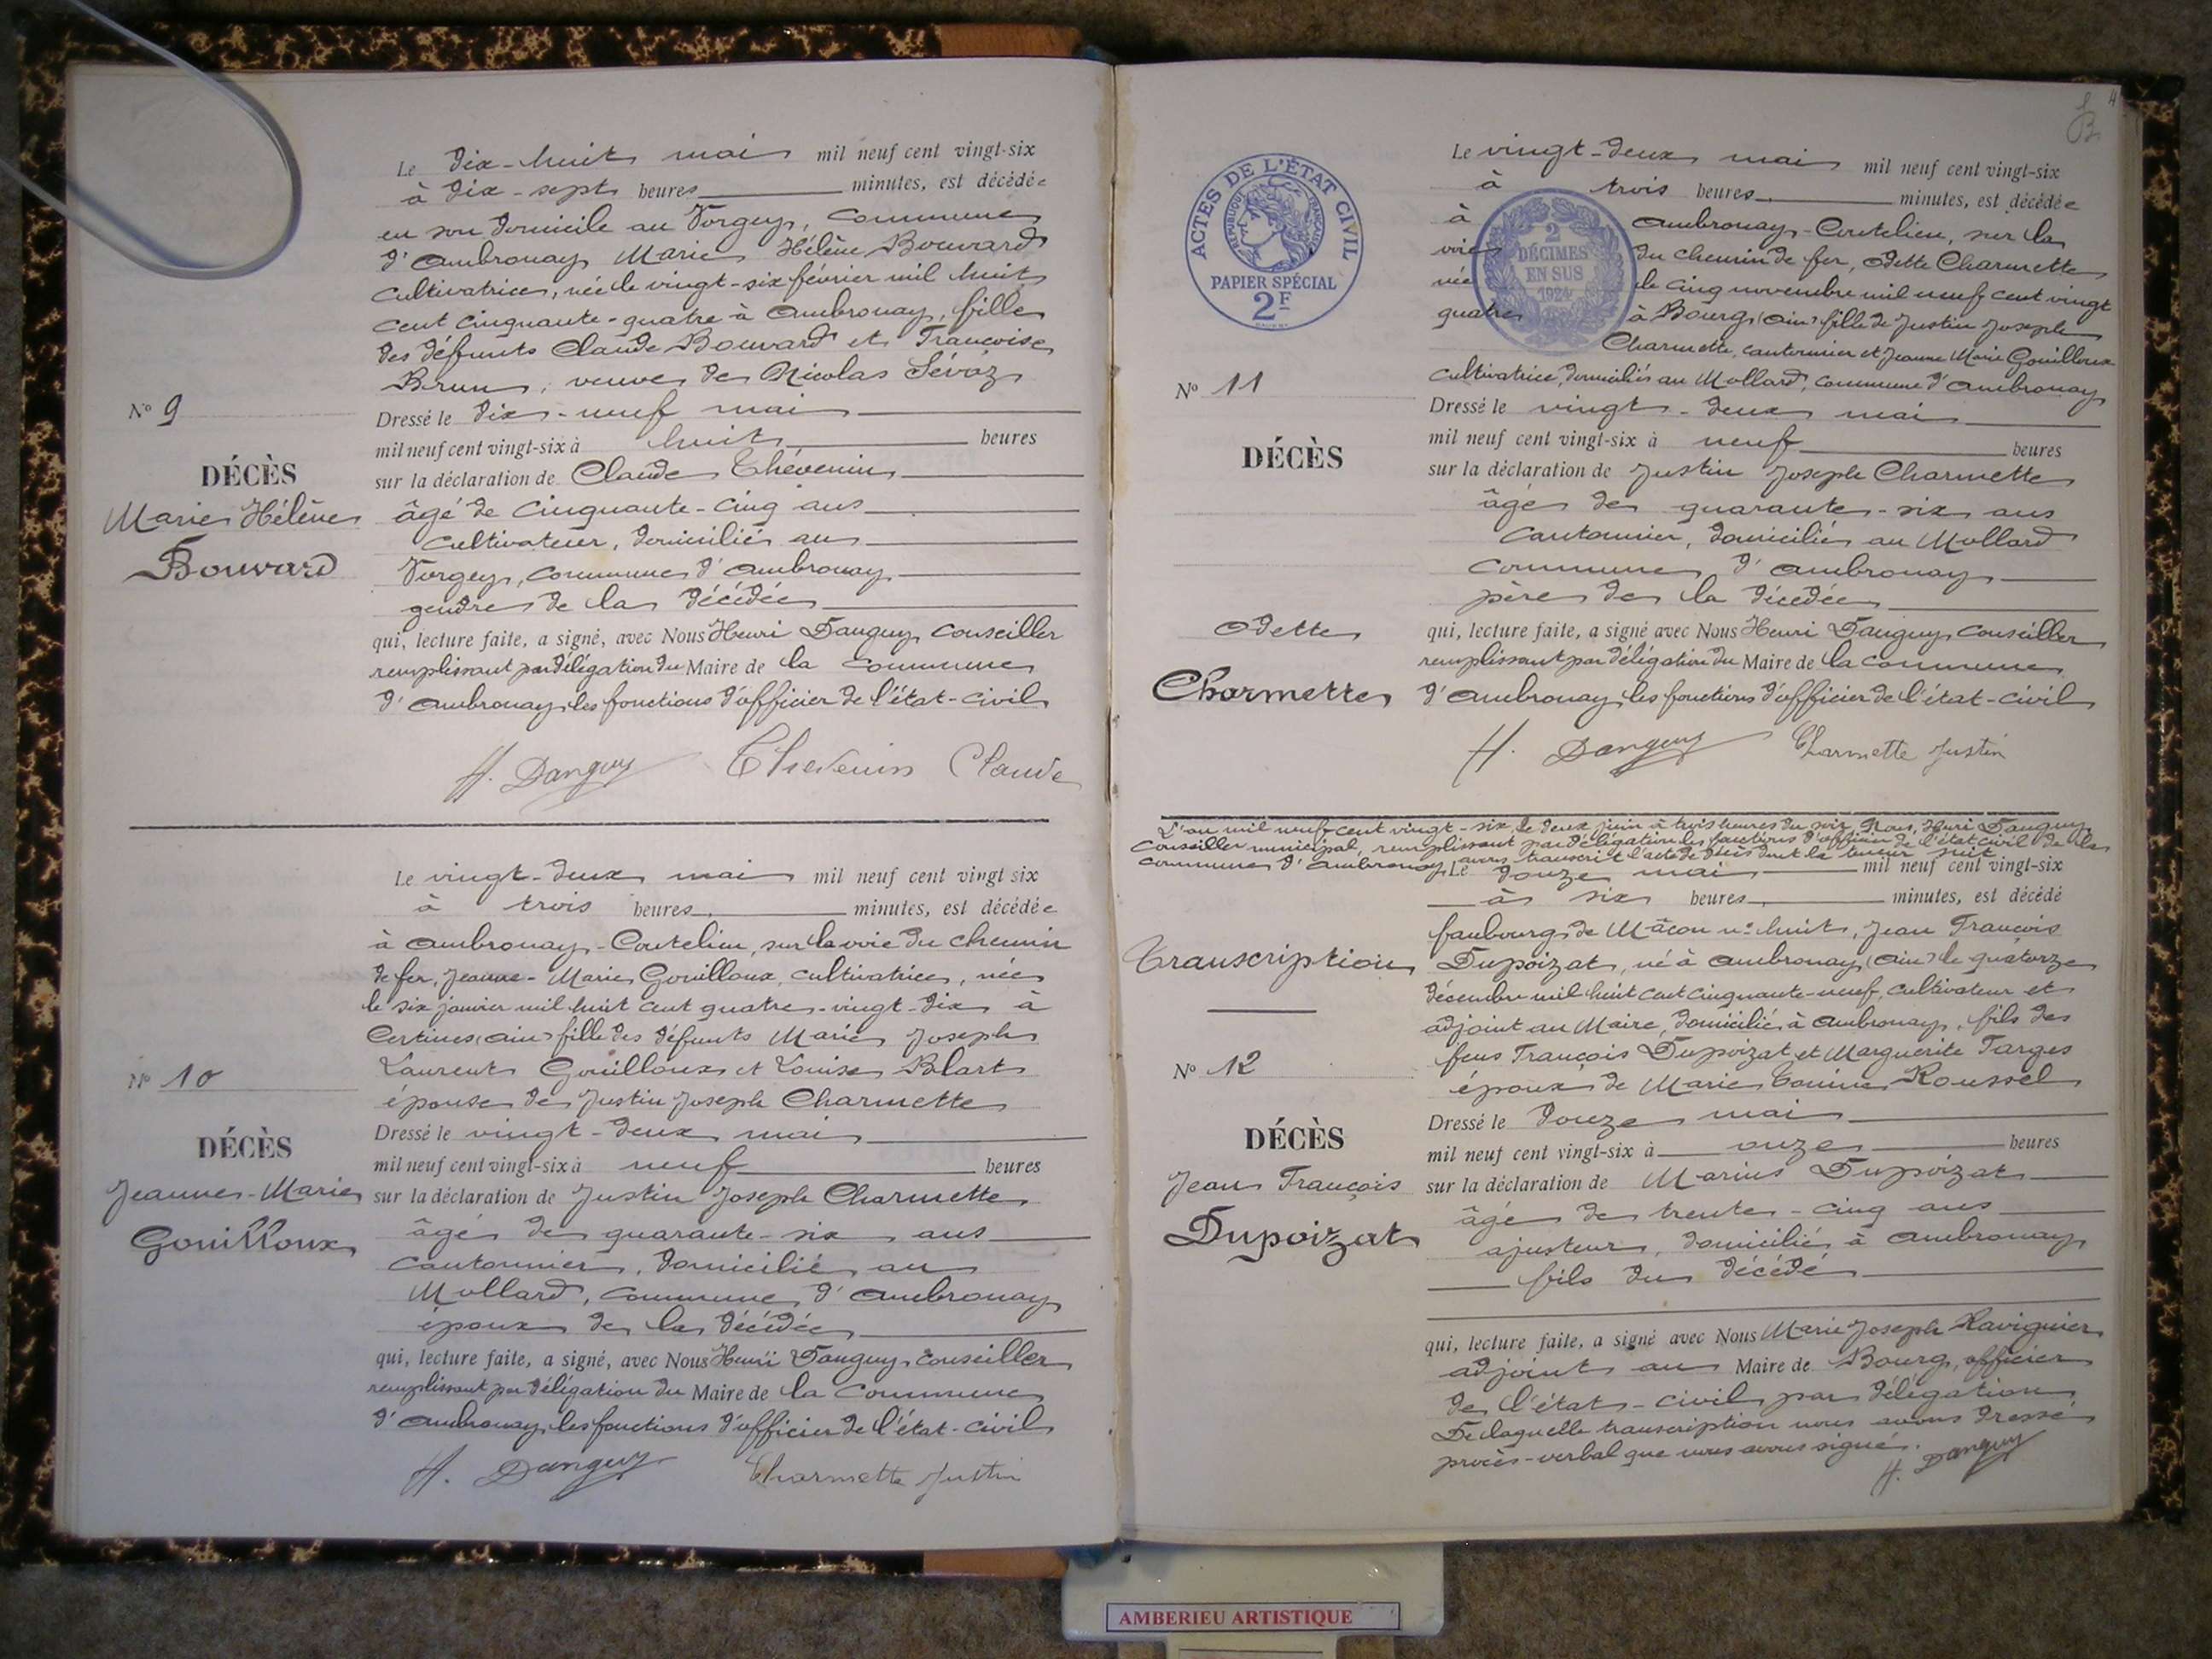 Le dix-huit mai mil neuf cent vingt-six
à dix-sept heures minutes, est décédée
en son domicile au Vorgey, commune
d'Ambronay Marie Hélène Bouvard
cultivatrice, née le vingt-six février mil huit
cent cinquante-quatre à Ambronay, fille
des défunts Claude Bouvard et Françoise
Brun, veuve de Nicolas Sévoz
Nº 9
Dressé le dix-neuf mai
mil neuf cent vingt-six à huit heures
DÉCÈS
Marie Hélène
Bouvard
sur la déclaration de Claude Thévenin
âgé de cinquante-cinq ans
cultivateur, domicilié au
Vorgey, commune d'Ambronay
gendre de la décédée
qui, lecture faite, a signé, avec Nous Henri Danguy conseiller
remplissant par délégation du Maire de la commune
d'Ambronay les fonctions d'officier de l'état-civil
H. Danguy Thevenin Claude
Le vingt-deux mai mil neuf cent vingt six
à trois heures minutes, est décédée
à Ambronay-Coutelieu, sur la voie du chemin
de fer, Jeanne-Marie Gouilloux, cultivatrice, née
le six janvier mil huit cent quatre-vingt-dix à
Certines (Ain) fille des défunts Marie Joseph
Laurent Gouilloux et Louise Blart
épouse de Justin Joseph Charmette
Nº 10
Dressé le vingt-deux mai
mil neuf cent vingt-six à neuf heures
DÉCÈS
Jeanne-Marie
Gouilloux
sur la déclaration de Justin Joseph Charmette
âgé de quarante-six ans
cantonnier, domicilié au
Mollard, commune d'Ambronay
époux de la décédée
qui, lecture faite, a signé, avec Nous Henri Danguy conseiller
remplissant par délégation du Maire de la commune
d'Ambronay les fonctions d'officier de l'état-civil
H. Danguy Charmette Justin
4
ACTES DE L'ÉTAT CIVIL
RÉPUBLIQUE FRANÇAISE
PAPIER SPÉCIAL
2F
2
DÉCIMES
EN SUS
1924
Le vingt-deux mai mil neuf cent vingt-six
à trois heures minutes, est décédée
à Ambronay-Coutelieu, sur la
voie du chemin de fer, Odette Charmette
née le cinq novembre mil neuf cent vingt
quatre à Bourg (Ain) fille de Justin Joseph
Charmette, cantonnier et Jeanne Marie Gouilloux
cultivatrice, domiciliés au Mollard, commune d'Ambronay
Nº 11
Dressé le vingt-deux mai
mil neuf cent vingt-six à neuf heures
DÉCÈS
Odette
Charmette
sur la déclaration de Justin Joseph Charmette
âgé de quarante-six ans
cantonnier, domicilié au Mollard
commune d'Ambronay
père de la décédée
qui, lecture faite, a signé avec Nous Henri Danguy conseiller
remplissant par délégation du Maire de la commune
d'Ambronay les fonctions d'officier de l'état-civil
H. Danguy Charmette Justin
L'an mil neuf cent vingt-six, le deux juin à trois heures du soir Nous, Henri Danguy,
conseiller municipal, remplissant par délégation les fonctions d'officier de l'état civil de la
commune d'Ambronay, avons transcrit l'acte de décès dont la teneur suit
Le douze mai mil neuf cent vingt-six
à six heures minutes, est décédé
faubourg de Mâcon nº huit, Jean François
Dupoizat, né à Ambronay (Ain) le quatorze
décembre mil huit cent cinquante-neuf, cultivateur et
adjoint au Maire, domicilié à Ambronay, fils des
feus François Dupoizat et Marguerite Farges
époux de Marie Roussel
Transcription
Nº 12
Dressé le douze mai
mil neuf cent vingt-six à onze heures
DÉCÈS
Jean François
Dupoizat
sur la déclaration de Marius Dupoizat
âgé de trente-cinq ans
ajusteur, domicilié à Ambronay
fils du décédé
qui, lecture faite, a signé avec Nous Marie Joseph Ravignier
adjoint au Maire de Bourg, officier
de l'état-civil par délégation
De laquelle transcription nous avons dressé
procès-verbal que nous avons signé.
H. Danguy
AMBERIEU ARTISTIQUE